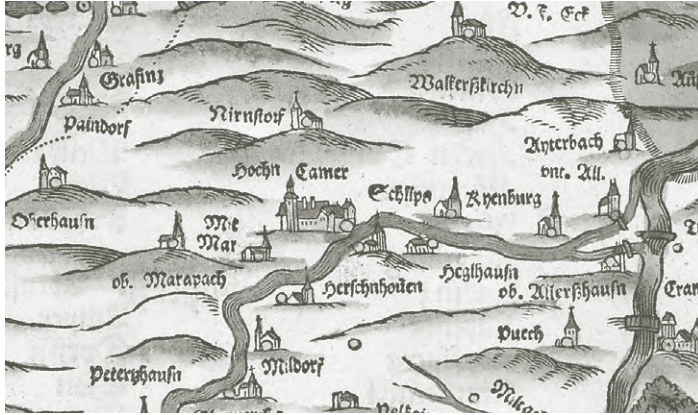 V. F. Eck
Grafing
Walkerßkirchn
Paindorf
Nirnstorf
Ayterbach
vnt. All.
Hochn Camer
Schlips
Kyenburg
Oberhausn
Mit
Mar
ob. Marapach
Herschnhouen
Heglhausn
ob. Allerßhausn
Cran
Puech
Mildorf
Peterßhausn